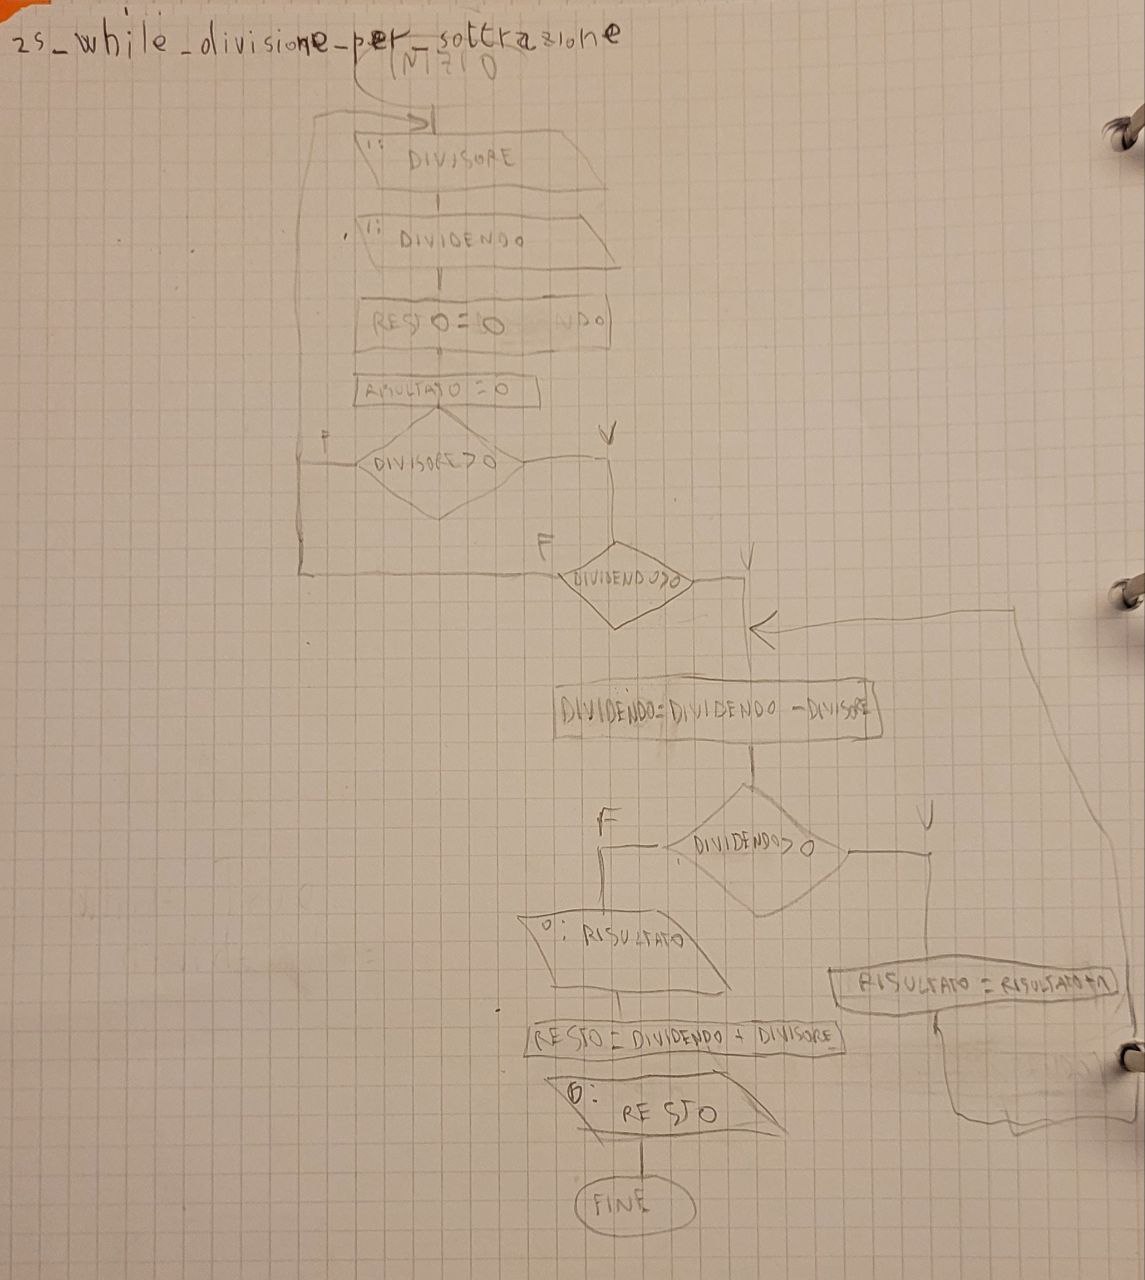 25_while_divisione_per_sottrazione
INIZIO
I: DIVISORE
I: DIVIDENDO
RESTO = 0 NDO
RISULTATO = 0
F V
DIVISORE > 0
F V
DIVIDENDO>0
DIVIDENDO=DIVIDENDO - DIVISORE
F V
DIVIDENDO > 0
O: RISULTATO
RISULTATO = RISULTATO+1
RESTO = DIVIDENDO + DIVISORE
O: RESTO
FINE